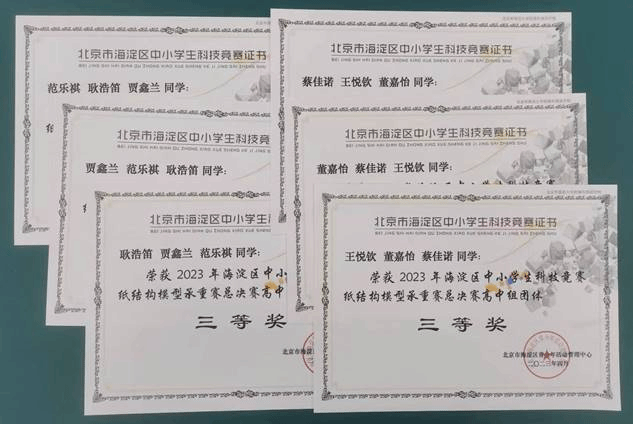 北京市海淀区中小学生科技竞赛证书
BEI JING SHI HAI DIAN QU ZHONG XIAO XUE SHENG KE JI JING SAI ZHENG SHU
范乐祺 耿浩笛 贾鑫兰 同学:
北京市海淀区中小学生科技竞赛证书
BEI JING SHI HAI DIAN QU ZHONG XIAO XUE SHENG KE JI JING SAI ZHENG SHU
蔡佳诺 王悦钦 董嘉怡 同学:
北京市海淀区中小学生科技竞
BEI JING SHI HAI DIAN QU ZHONG XIAO XUE SHENG KE JI JING
贾鑫兰 范乐祺 耿浩笛 同学:
北京市海淀区中小学生科技竞赛证书
BEI JING SHI HAI DIAN QU ZHONG XIAO XUE SHENG KE JI JING SAI ZHENG SHU
董嘉怡 蔡佳诺 王悦钦 同学:
北京市海淀区中小学生
BEI JING SHI HAI DIAN QU ZHONG XIAO XUE
耿浩笛 贾鑫兰 范乐祺 同学:
荣获 2023 年海淀区中小
纸结构模型承重赛总决赛高中
三等奖
北京市海
北京市海淀区中小学生科技竞赛证书
BEI JING SHI HAI DIAN QU ZHONG XIAO XUE SHENG KE JI JING SAI ZHENG SHU
王悦钦 董嘉怡 蔡佳诺 同学:
荣获 2023 年海淀区中小学生科技竞赛
纸结构模型承重赛总决赛高中组团体
三等奖
北京市海淀区青少年活动管理中心
二〇二三年四月